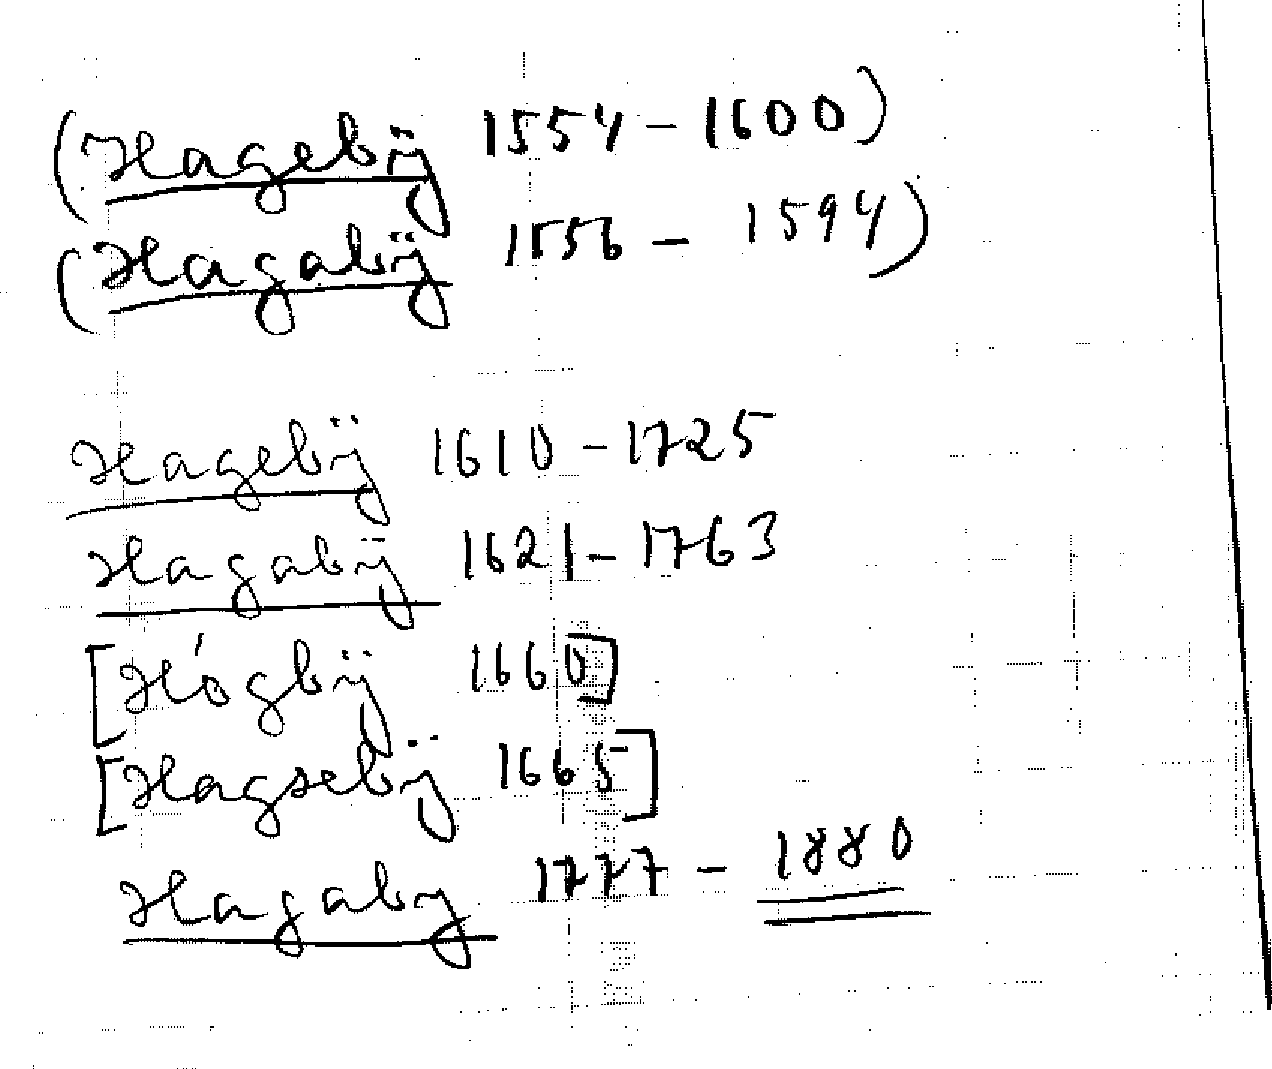 (Hagebÿ 1554 - 1600)
(Hagabÿ 1556 - 1594)
Hagebÿ 1610 - 1725
Hagabÿ 1621 - 1763
[Hógbÿ 1660]
[Hagsebÿ 1665]
Hagaby 1777 - 1880